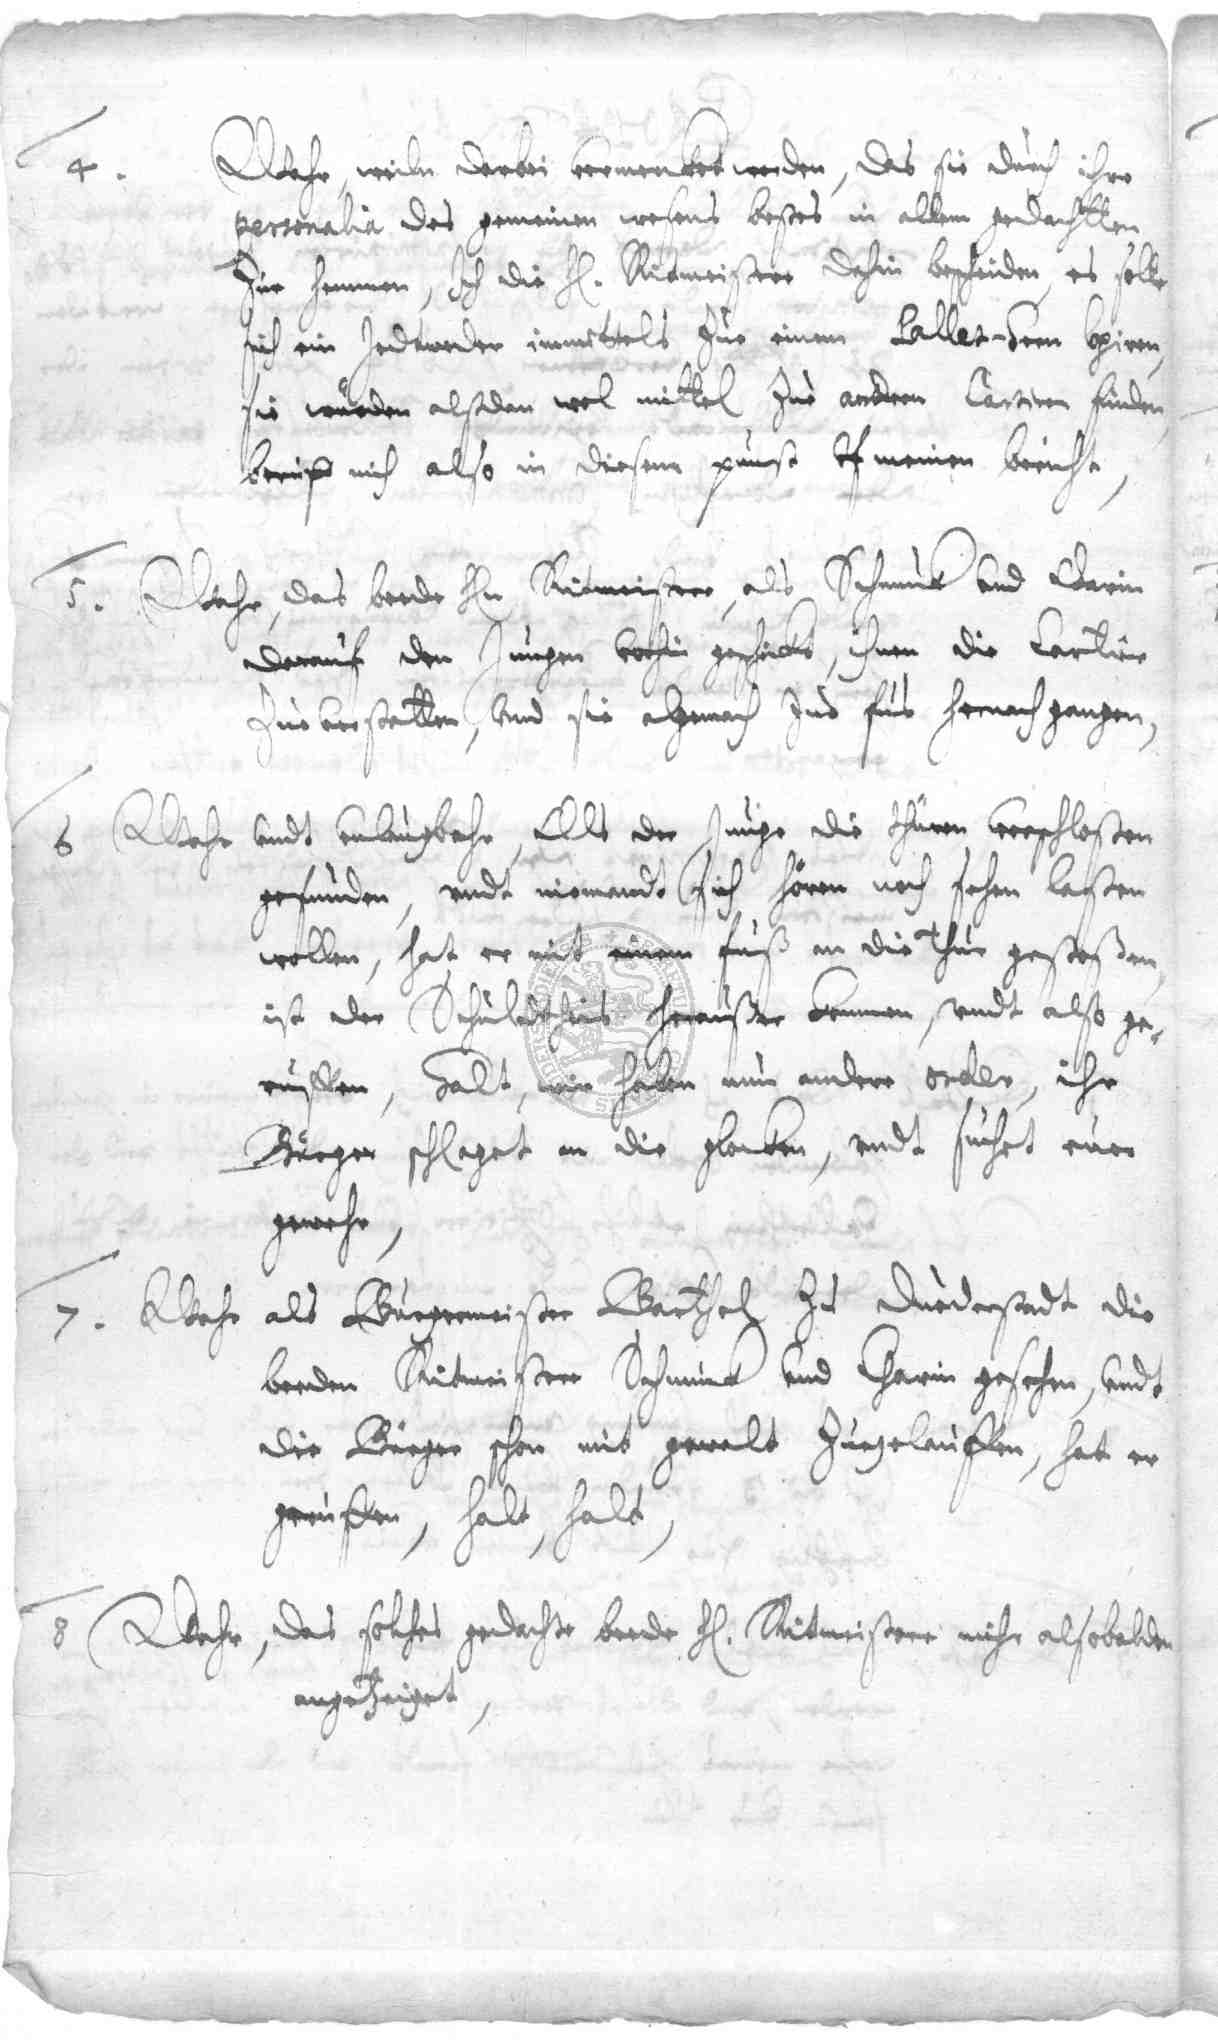 4. Wahr, weiln darbei vermercket worden, das sie durch ihre
personalia des gemeinen wesens bestes in allem gedachten
Zue hemmen, Ich die H. Ritmeistere dahin bescheiden, es solle
sich ein Jedtweder immittels Zue einem
sie würden alsdan wol mittel Zue andern finden,
mich also in diesem punct vf meinen bericht,
5. Wahr, das beede Hn Ritmeistere, als Schmuck vnd
darauf den Jungen vorhin geschickt, ihnen die
Zue bestellen, vnd sie algemach Zue fus hernach gangen,
6 Wahr vndt vnleugbahr, Als der Junge die thüren verschlossen
gefunden, vndt niemandt sich hören noch sehen lassen
wollen, hat er mit einem fuß an die Thür gestoßen,
ist der Schuldtheis heraußer kommen, vndt also ge-
ruffen, Halt, wir haben nun andere order, ihr
Bürger schlaget an die glocken, vndt suchet eüer
gewehr,
7. Wahr als Bürgermeister Barthel Zu Duderstadt die
beeden Ritmeistere Schmuck vnd gesehen, vndt
die Bürger schon mit gewalt Zugelauffen, hat er
geruffen, halt, halt,
8 Wahr, das solches gedachte beede H. Ritmeistere mihr alsobalden
angeZeiget,